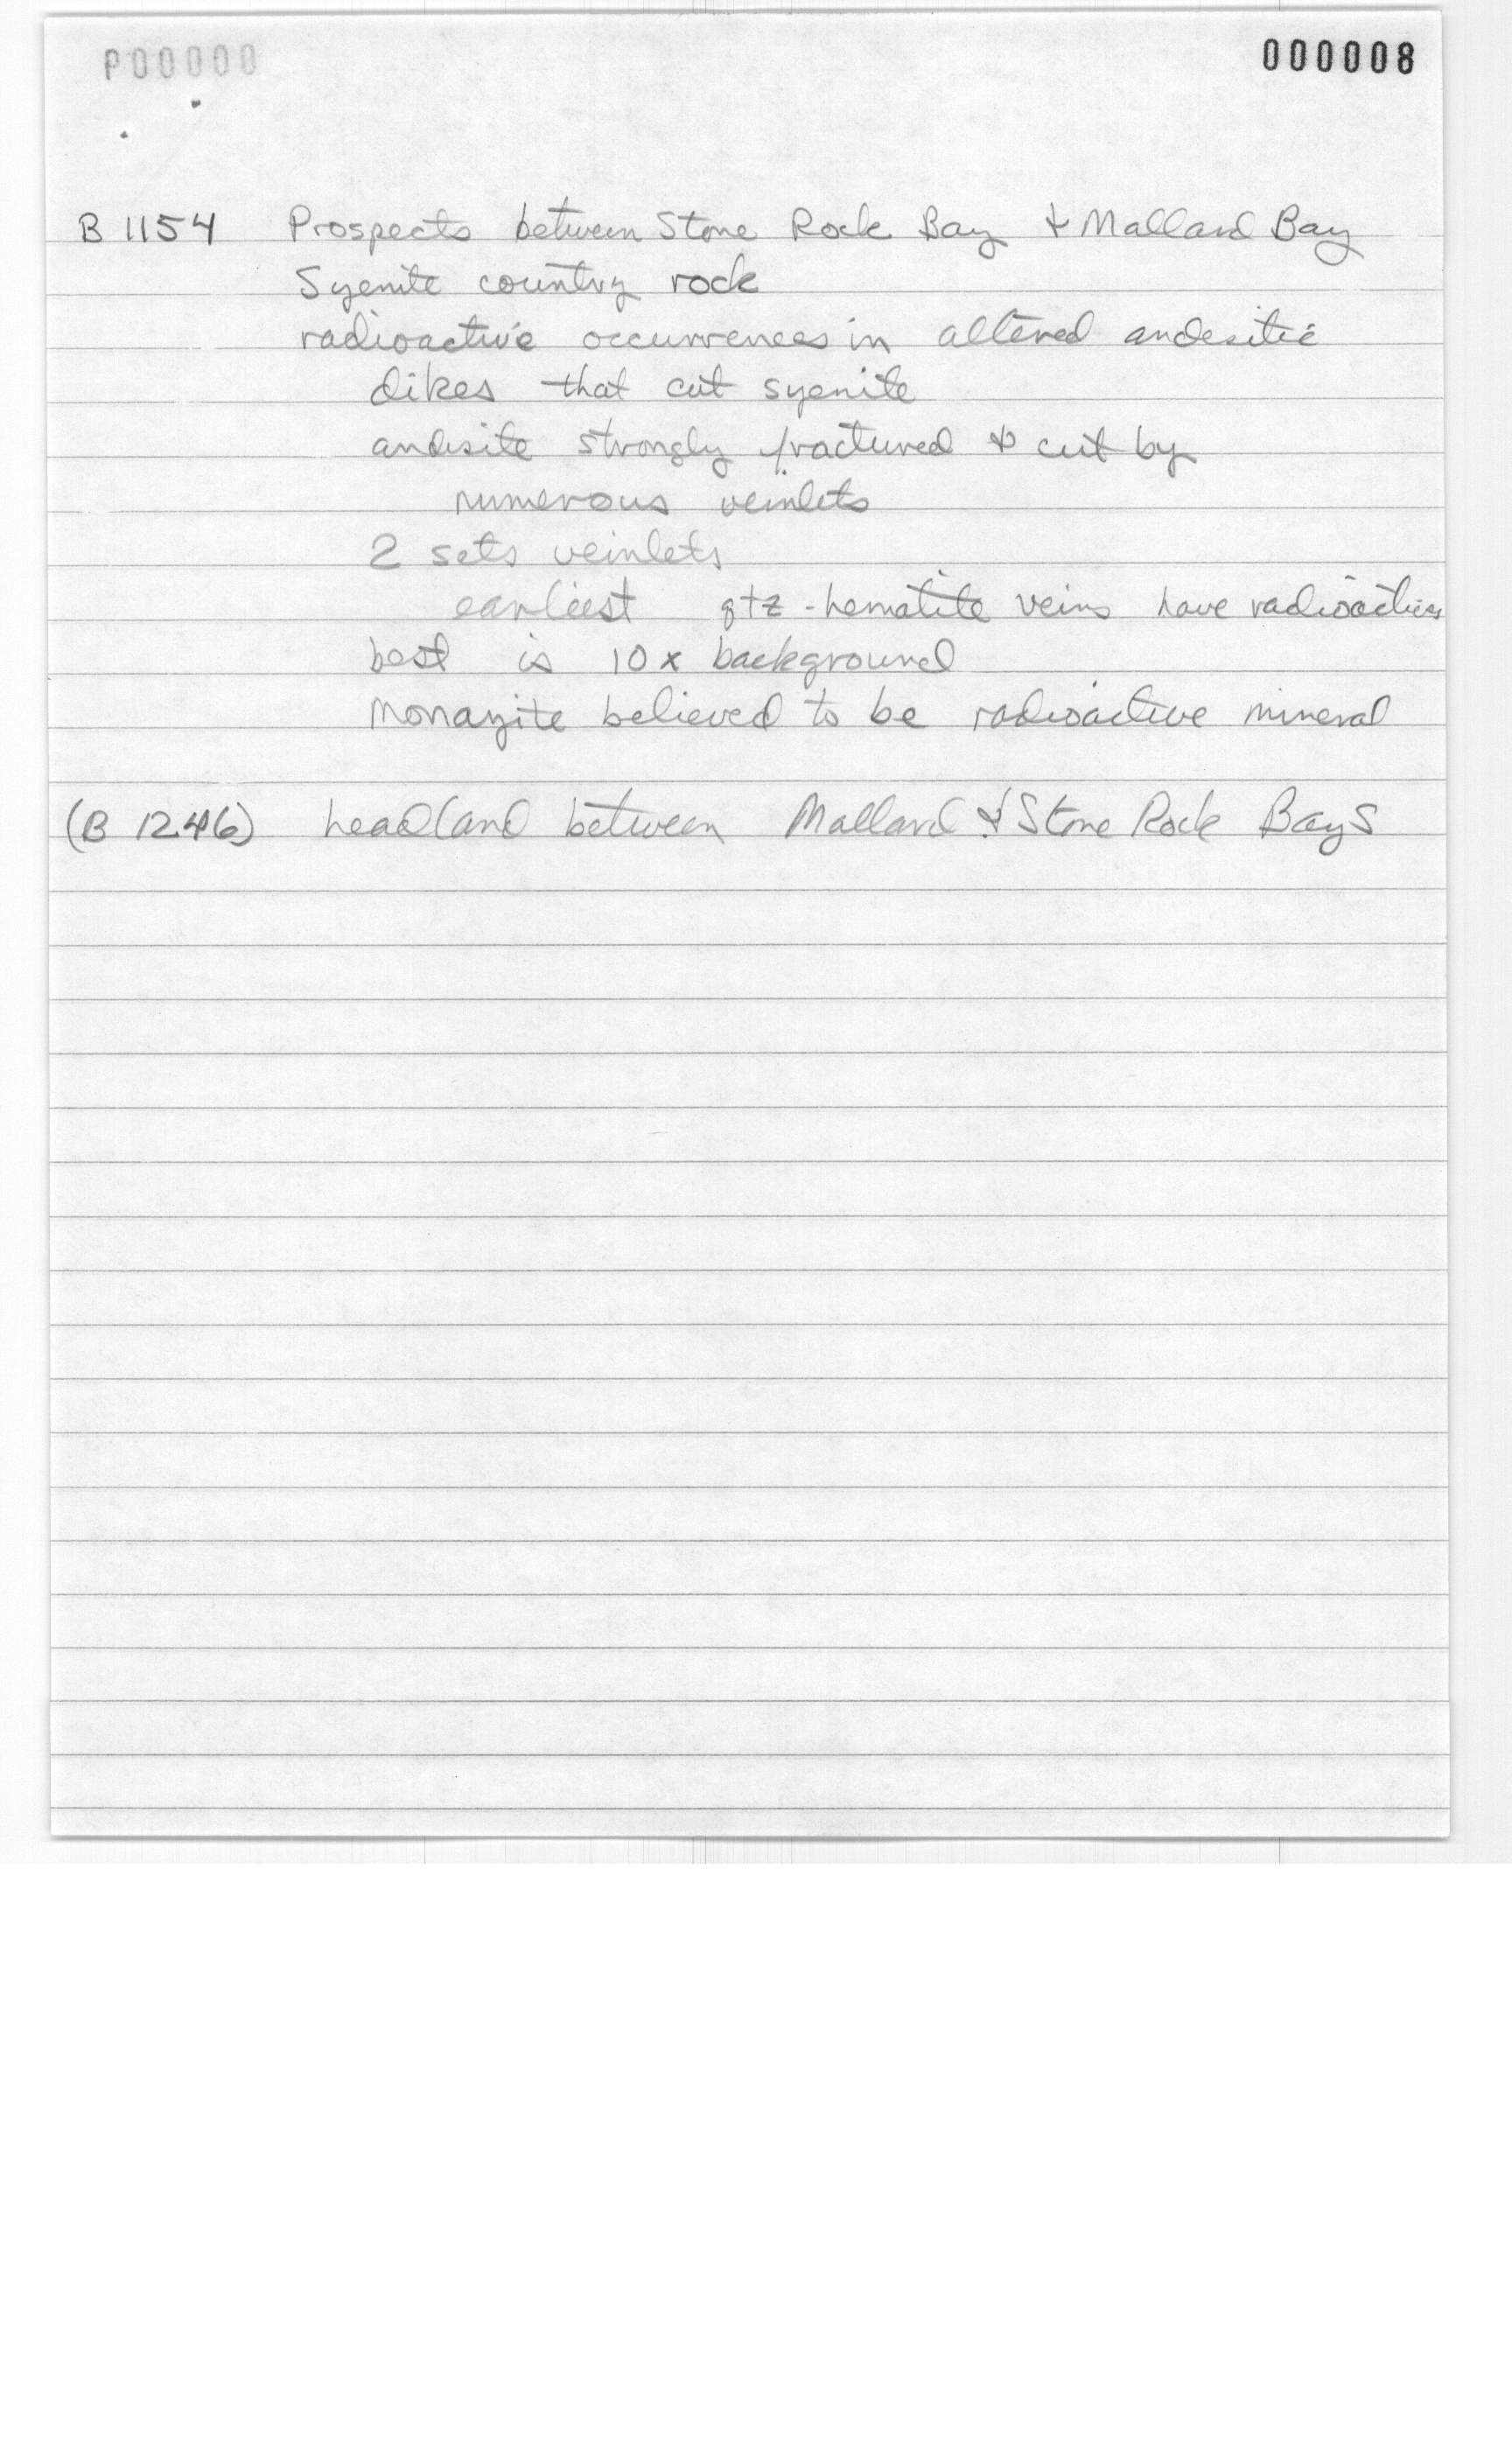 P00000 000008
B 1154 Prospects between Stone Rock Bay & Mallard Bay
Syenite country rock
radioactive occurrences in altered andesitic
dikes that cut syenite
andesite strongly fractured & cut by
numerous veinlets
2 sets veinlets
earliest qtz-hematite veins have radioactivity
best is 10x background
monazite believed to be radioactive mineral
(B 1246) headland between Mallard & Stone Rock Bays